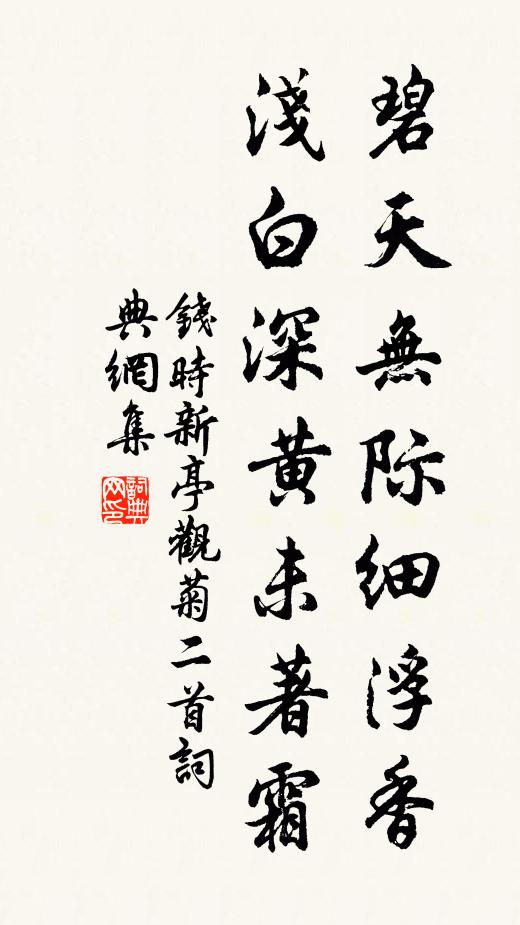 碧天無际细浮香
淺白深黄未著霜
錢時新亭觀菊二首詞
典網集
詞典网印